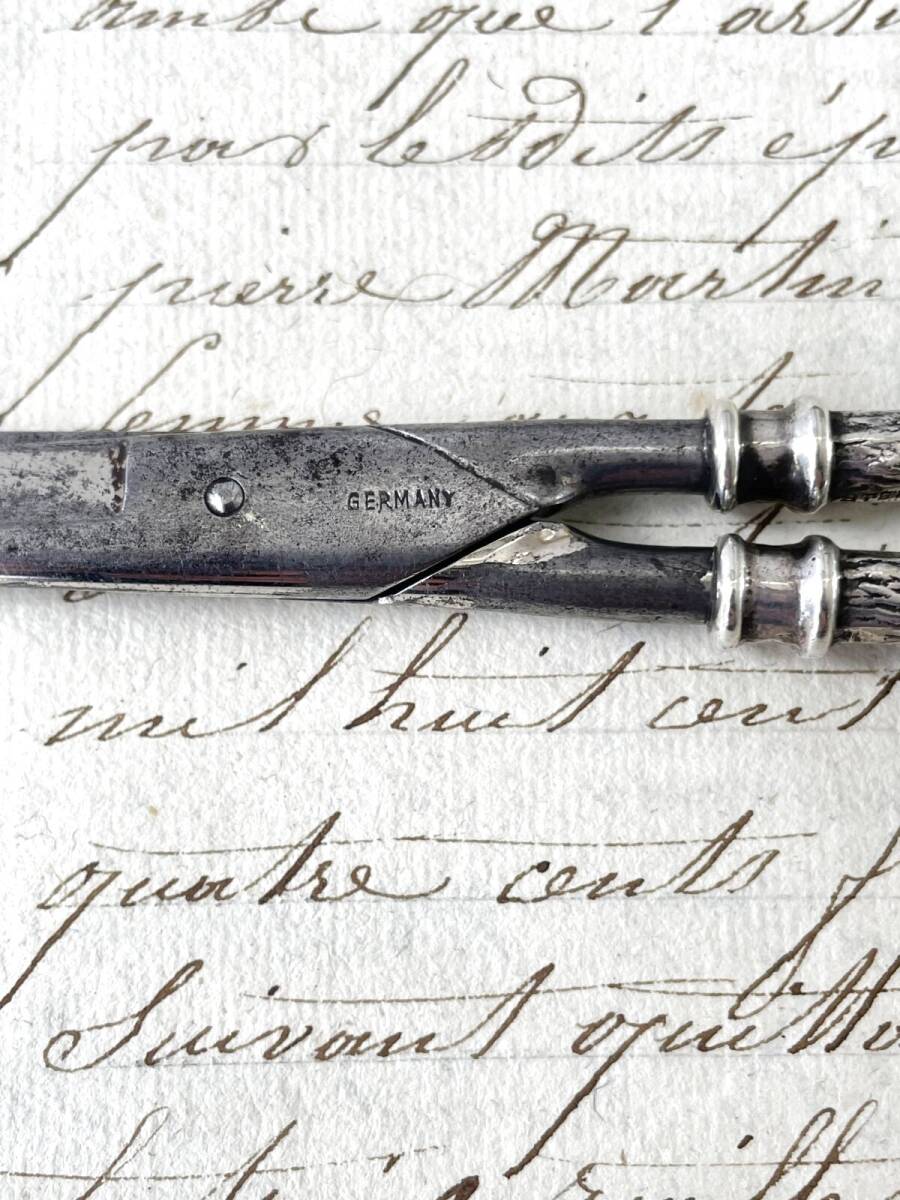 que l'arti
par lesdits ép
pierre Martin
GERMANY
mil huit cent
quatre cents f
Suivant quitta